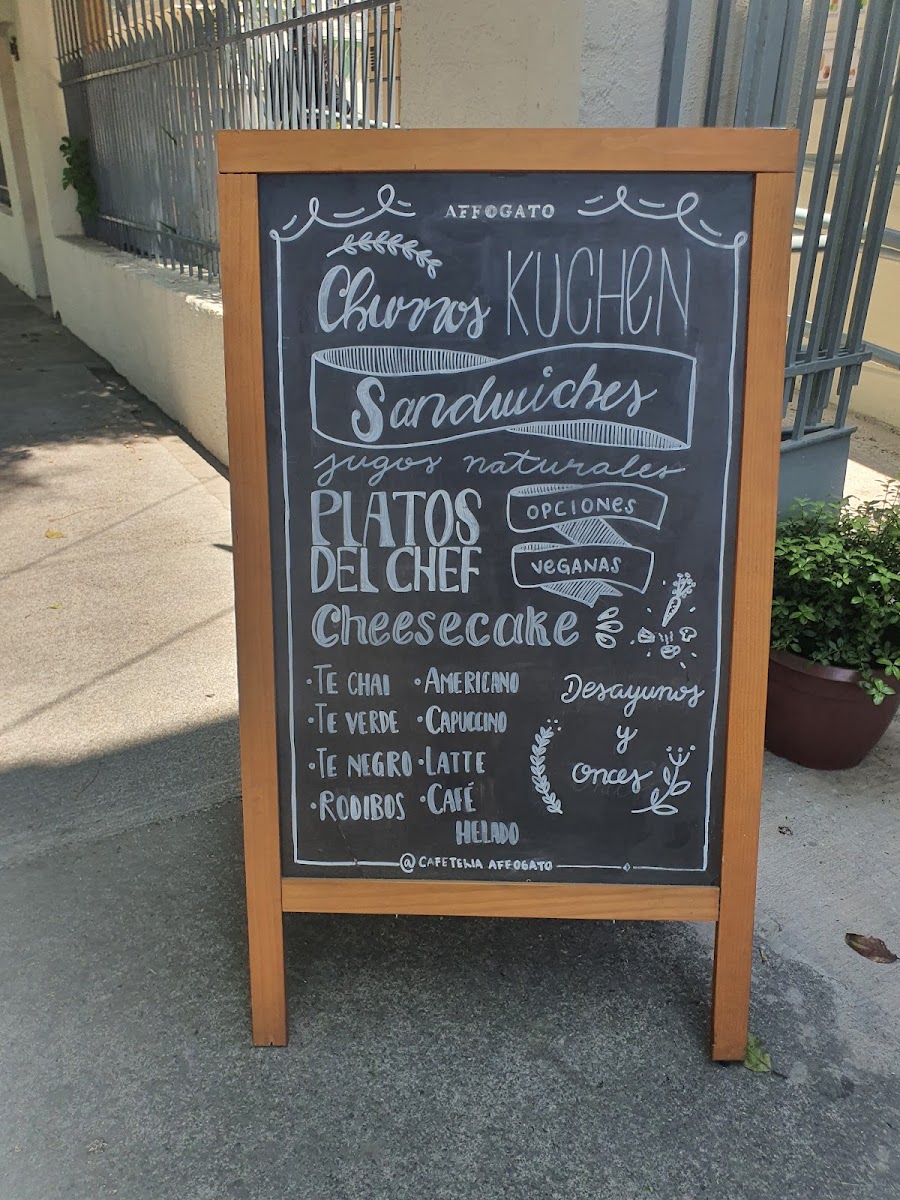 AFFOGATO
Churros KUCHEN
Sandwiches
jugos naturales
PLATOS
DEL CHEF
OPCIONES
VEGANAS
Cheesecake
·TE CHAI
·TE VERDE
·TE NEGRO
·ROOIBOS
·AMERICANO
·CAPUCCINO
·LATTE
·CAFÉ
HELADO
Desayunos
y
onces
@CAFETERIA AFFOGATO